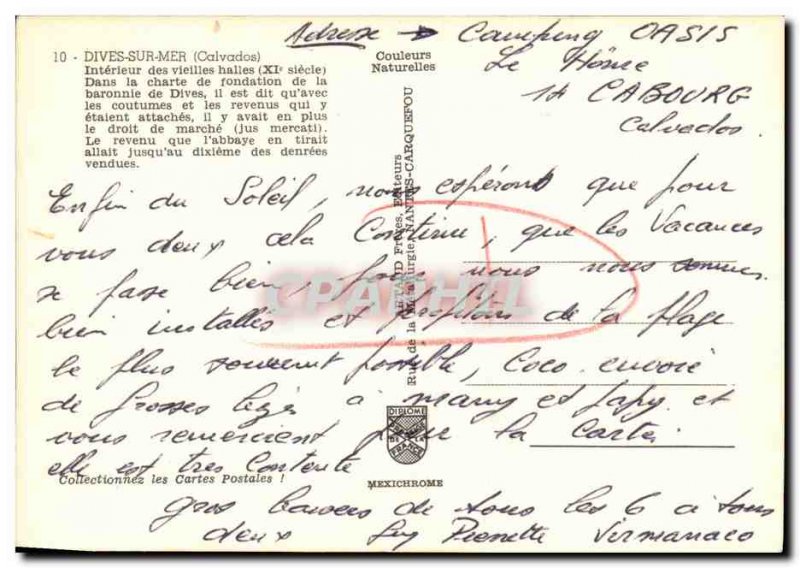 Adresse → Camping OASIS
Le Hôme
14 CABOURG
Calvados.
10 - DIVES-SUR-MER (Calvados)
Intérieur des vieilles halles (XIe siècle)
Dans la charte de fondation de la
baronnie de Dives, il est dit qu'avec
les coutumes et les revenus qui y
étaient attachés, il y avait en plus
le droit de marché (jus mercati).
Le revenu que l'abbaye en tirait
allait jusqu'au dixième des denrées
vendues.
Couleurs
Naturelles
Enfin du Soleil, nous espérons que pour
vous deux cela Continue, que les Vacances
se fasse bien, nous nous sommes
bien installés et profitons de la plage
le plus souvent possible, Coco envoie
de grosses bizes à mamy et papy et
vous remercient pour la Carte
elle est tres Contente
gros baisers de tous les 6 a tous
deux Guy Pierrette Virmanaco
Frères, Editeurs
Rue de la Métallurgie, NANTES-CARQUEFOU
CPAPHIL
DIPLOME
DE LA
FRANCE
MEXICHROME
Collectionnez les Cartes Postales !